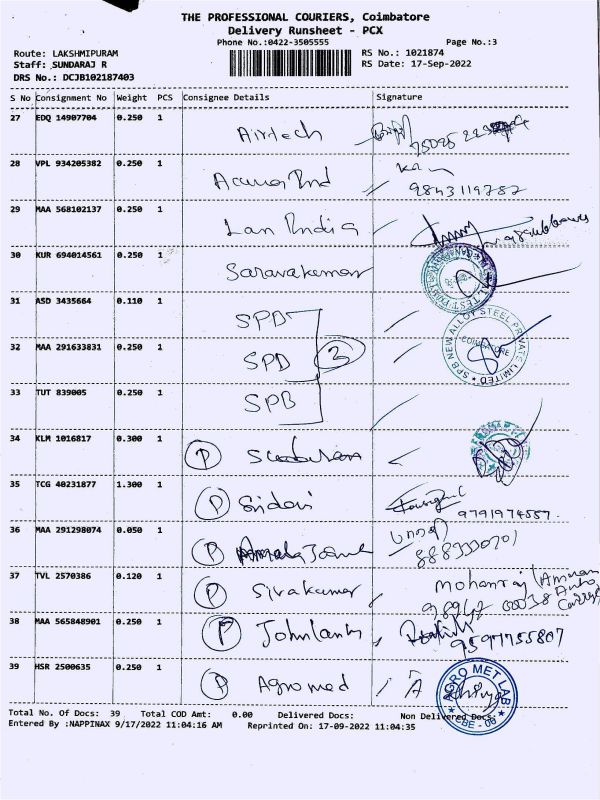 THE PROFESSIONAL COURIERS, Coimbatore
Delivery Runsheet - PCX
Phone No.:0422-3505555
Page No.:3
Route: LAKSHMIPURAM
RS No.: 1021874
Staff: SUNDARAJ R
RS Date: 17-Sep-2022
DRS No.: DCJB102187403
S No Consignment No Weight PCS Consignee Details Signature
27 EDQ 14907704 0.250 1 Airtech
28 VPL 934205382 0.250 1
9843119787
29 MAA 568102137 0.250 1 Lan India
30 KUR 694014561 0.250 1 Saravakumar
31 ASD 3435664 0.110 1 SPD
32 MAA 291633831 0.250 1 SPD 3
SPB NEW ALLOY STEEL PRIVATE LIMITED COIMBATORE
33 TUT 839005 0.250 1 SPB
34 KLM 1016817 0.300 1 P
35 TCG 40231877 1.300 1 P Sridevi
9791974557
36 MAA 291298074 0.050 1 P
37 TVL 2570386 0.120 1 P Sivakumar Mohanraj (Amman Auto
38 MAA 565848901 0.250 1 P
9597755807
39 HSR 2500635 0.250 1 P Agromed
AGRO MET LAB CBE - 06
Total No. Of Docs: 39 Total COD Amt: 0.00 Delivered Docs: Non Delivered Docs:
Entered By :NAPPINAX 9/17/2022 11:04:16 AM Reprinted On: 17-09-2022 11:04:35